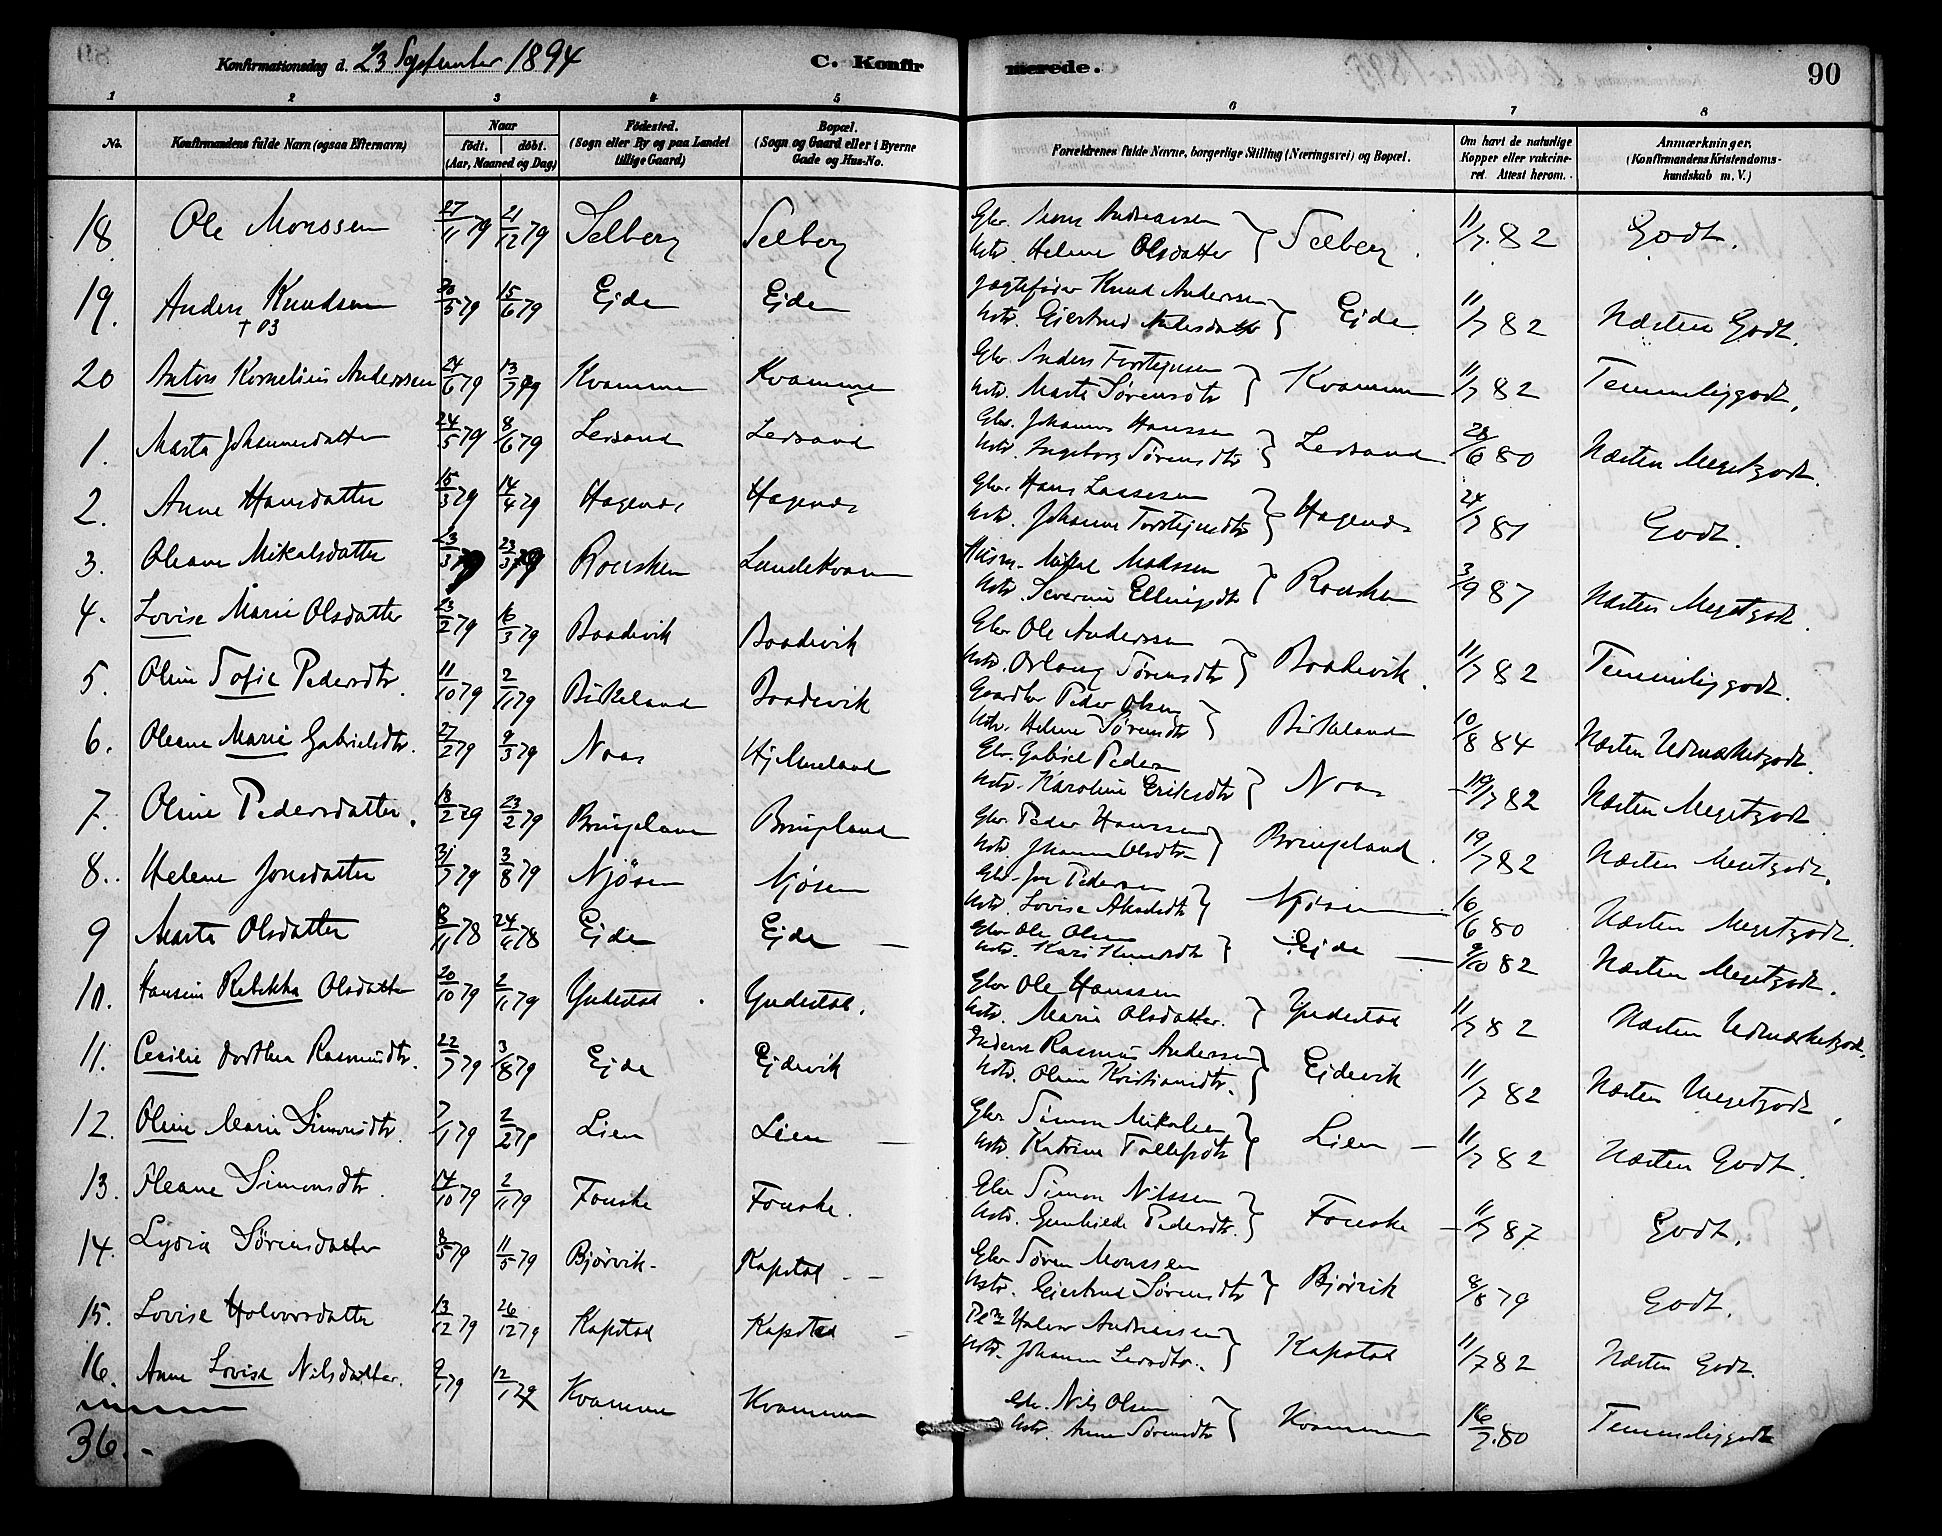 Konfirmationsdag d. 23 September 1894
C. Konfirmerede.
90
1 2 3 4 5 6 7 8
No. Konfirmandens fulde Navn (ogsaa Efternavn) Naar født. døbt. (Aar, Maaned og Dag) Fødested. (Sogn eller By og paa Landet tillige Gaard) Bopæl. (Sogn og Gaard eller i Byerne Gade og Hus-No. Forældrenes fulde Navne, borgerlige Stilling (Næringsvei) og Bopæl. Om havt de naturlige Kopper eller vakcineret. Attest herom. Anmærkninger. (Konfirmandens Kristendomskundskab m. V.)
18. Ole Monssen 27/11 79 21/12 79 Selberg Selberg Gbr. Mons Andreassen Hstr. Helene Olsdatter } Selberg. 11/7 82 Godt.
19. Anders Knudsen † 03 30/5 79 15/6 79 Ejde Ejde Jægtefører Knud Anderssen Hstr. Gjertrud } Ejde 11/7 82 Næsten Godt.
20 Anton Kornelius Anderssen 24/6 79 13/7 79 Kvamme Kvamme Gbr. Anders Torstejnsen Hstr. Marta Sørensdtr } Kvamme 11/7 82 Temmeliggodt.
1. Marta Johannesdatter 24/5 79 8/6 79 Lersund Lersund Gbr. Johannes Hanssen Hstr. Ingeborg Sørensdtr } Lersund 28/6 80 Næsten Megetgodt.
2. Anne Hansdatter 15/3 79 14/4 79 Hagenæs Hagenæs Gbr. Hans Lassesen Hstr. Johanne Torstejnsdtr } Hagenæs 24/7 81 Godt.
3. Oleane Mikalsdatter 13/3 79 23/3 79 Rousken Lundekvam Husm. Mikal Madssen Hstr. Severine Ellingsdtr } Rousken 3/9 87 Næsten Megetgodt.
4. Lovise Marie Olsdatter 23/2 79 16/3 79 Baadevik Baadevik Gbr Ole Anderssen Hstr. Sørensdtr } Baadevik. 11/7 82 Temmeliggodt.
5. Oline Sofie Pedersdtr. 11/10 79 2/11 79 Birkeland Baadevik Gaardbr Peder Olsen Hstr. Helene Sørensdtr } Birkeland 10/8 84 Næsten Udmærketgodt.
6. Oleane Marie Gabrielsdtr. 27/2 79 9/3 79 Naas Hjelmeland Gbr. Gabriel Peders Hstr. Karoline Eriksdtr } Naas 19/7 82 Næsten Megetgodt
7. Oline Pedersdatter. 18/2 79 23/2 79 Bringeland Bringeland Gbr. Peder Hanssen Hstr. Johanne Olsdtr } Bringeland. 19/7 82 Næsten Megetgodt.
8. Helene Jonsdatter 31/7 79 3/8 79 Njøsen Njøsen Gbr. Jon Pederssen Hstr. Lovise } Njøsen 16/6 80 Næsten Megetgodt.
9 Marta Olsdatter 8/11 78 24/11 78 Ejde Ejde Gbr Ole Olsen Hstr. Kari Knudsdtr } Ejde 9/10 82 Næsten Megetgodt.
10. Hansine Rebekka Olsdatter 20/10 79 2/11 79 Yndestad Yndestad. Gbr Ole Hanssen Hstr. Marie Olsdatter } Yndestad 11/7 82 Næsten Udmærketgodt.
11. Cecilie Dorthea Rasmusdtr. 22/7 79 3/8 79 Ejde Ejdevik Inderst Rasmus Anderssen Hstr. Oline Kristiansdtr. } Ejdevik 11/7 82 Næsten Megetgodt.
12. Oline Marie Simonsdtr. 7/1 79 2/2 79 Lien Lien Gbr Simon Mikalsen Hstr. Katrine Tollefsdtr } Lien 11/7 82 Næsten Godt.
13. Oleane Simonsdtr. 14/10 79 2/11 79 Fonske Fonske. Gbr Simon Nilssen Hstr. Gunhilde Pedersdtr. } Fonske 11/7 87 Godt.
14. Lydia Sørensdatter 8/5 79 11/5 79 Bjørvik Kapstad Gbr Søren Monssen Hstr. Gjertrud Sørensdtr } Bjørvik 8/8 79 Godt.
15. Lovise Halvorsdatter 13/12 79 26/12 79 Kapstad Kapstad Halvor Andreassen Hstr. Johanne Larsdtr. } Kapstad 11/7 82 Næsten Godt.
16. Anne Lovise Nilsdatter. 9/1 79 12/1 79 Kvamme Kvamme Gbr. Nils Olsen Hstr. Anne Sørensdtr } Kvamme 16/7 80 Temmeliggodt
36.